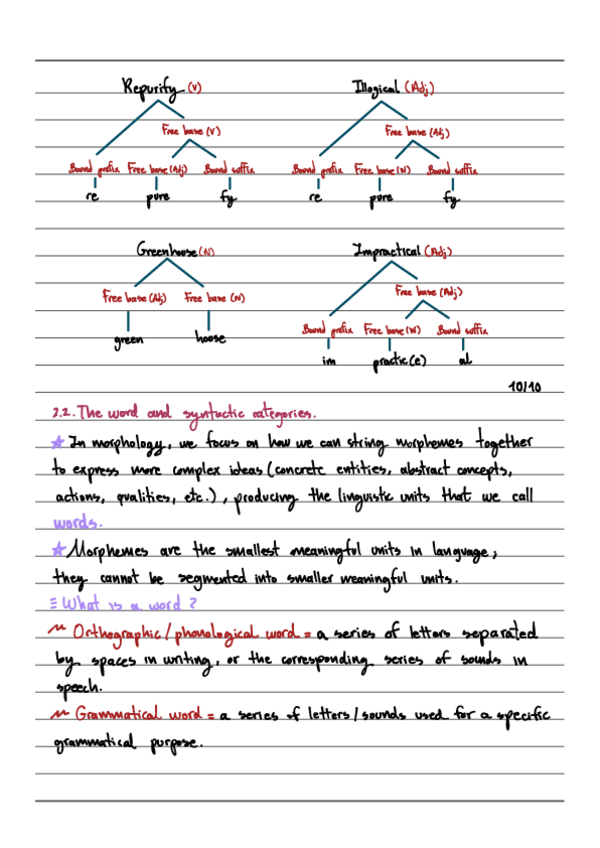 Repurify (V) Illogical (Adj)
Free base (V) Free base (Adj)
Bound prefix Free base (Adj) Bound suffix Bound prefix Free base (N) Bound suffix
re pure fy re pure fy
Greenhouse (N) Impractical (Adj)
Free base (Adj) Free base (N) Free base (Adj)
Bound prefix Free base (N) Bound suffix
green house
im practic(e) al
10/10
2.2. The word and syntactic categories.
★ In morphology, we focus on how we can string morphemes together
to express more complex ideas (concrete entities, abstract concepts,
actions, qualities, etc.), producing the linguistic units that we call
words.
★ Morphemes are the smallest meaningful units in language;
they cannot be segmented into smaller meaningful units.
≡ What is a word?
~ Orthographic / phonological word = a series of letters separated
by spaces in writing, or the corresponding series of sounds in
speech.
~ Grammatical word = a series of letters / sounds used for a specific
grammatical purpose.